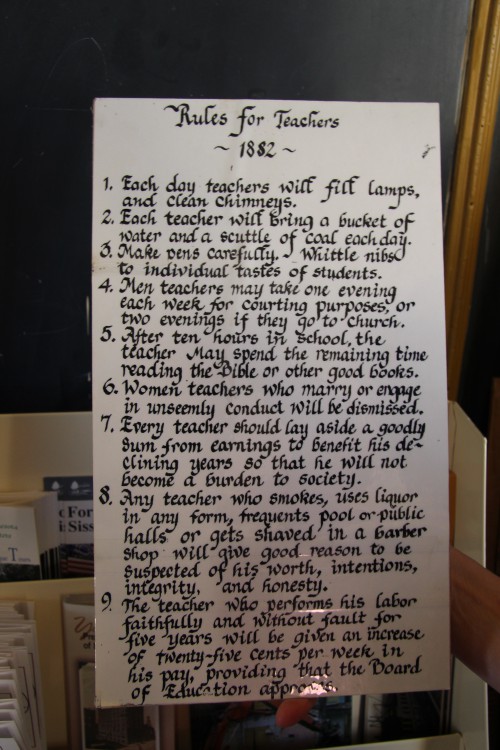 Rules for Teachers
~ 1882 ~
1. Each day teachers will fill lamps,
and clean chimneys.
2. Each teacher will bring a bucket of
water and a scuttle of coal each day.
3. Make pens carefully. Whittle nibs
to individual tastes of students.
4. Men teachers may take one evening
each week for courting purposes, or
two evenings if they go to church.
5. After ten hours in school, the
teacher May spend the remaining time
reading the Bible or other good books.
6. Women teachers who marry or engage
in unseemly conduct will be dismissed.
7. Every teacher should lay aside a goodly
sum from earnings to benefit his de-
clining years so that he will not
become a burden to society.
8. Any teacher who smokes, uses liquor
in any form, frequents pool or public
halls or gets shaved in a barber
shop will give good reason to be
suspected of his worth, intentions,
integrity, and honesty.
9. The teacher who performs his labor
faithfully and without fault for
five years will be given an increase
of twenty-five cents per week in
his pay, providing that the Board
of Education approves.
For
Siss